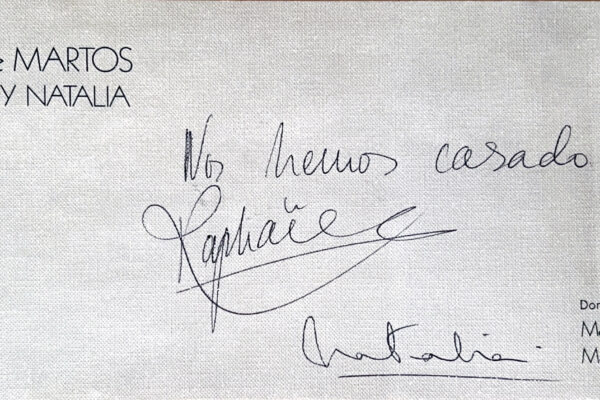 e MARTOS
Y NATALIA
Nos hemos casado
Raphael
Natalia
Dom
Ma
M